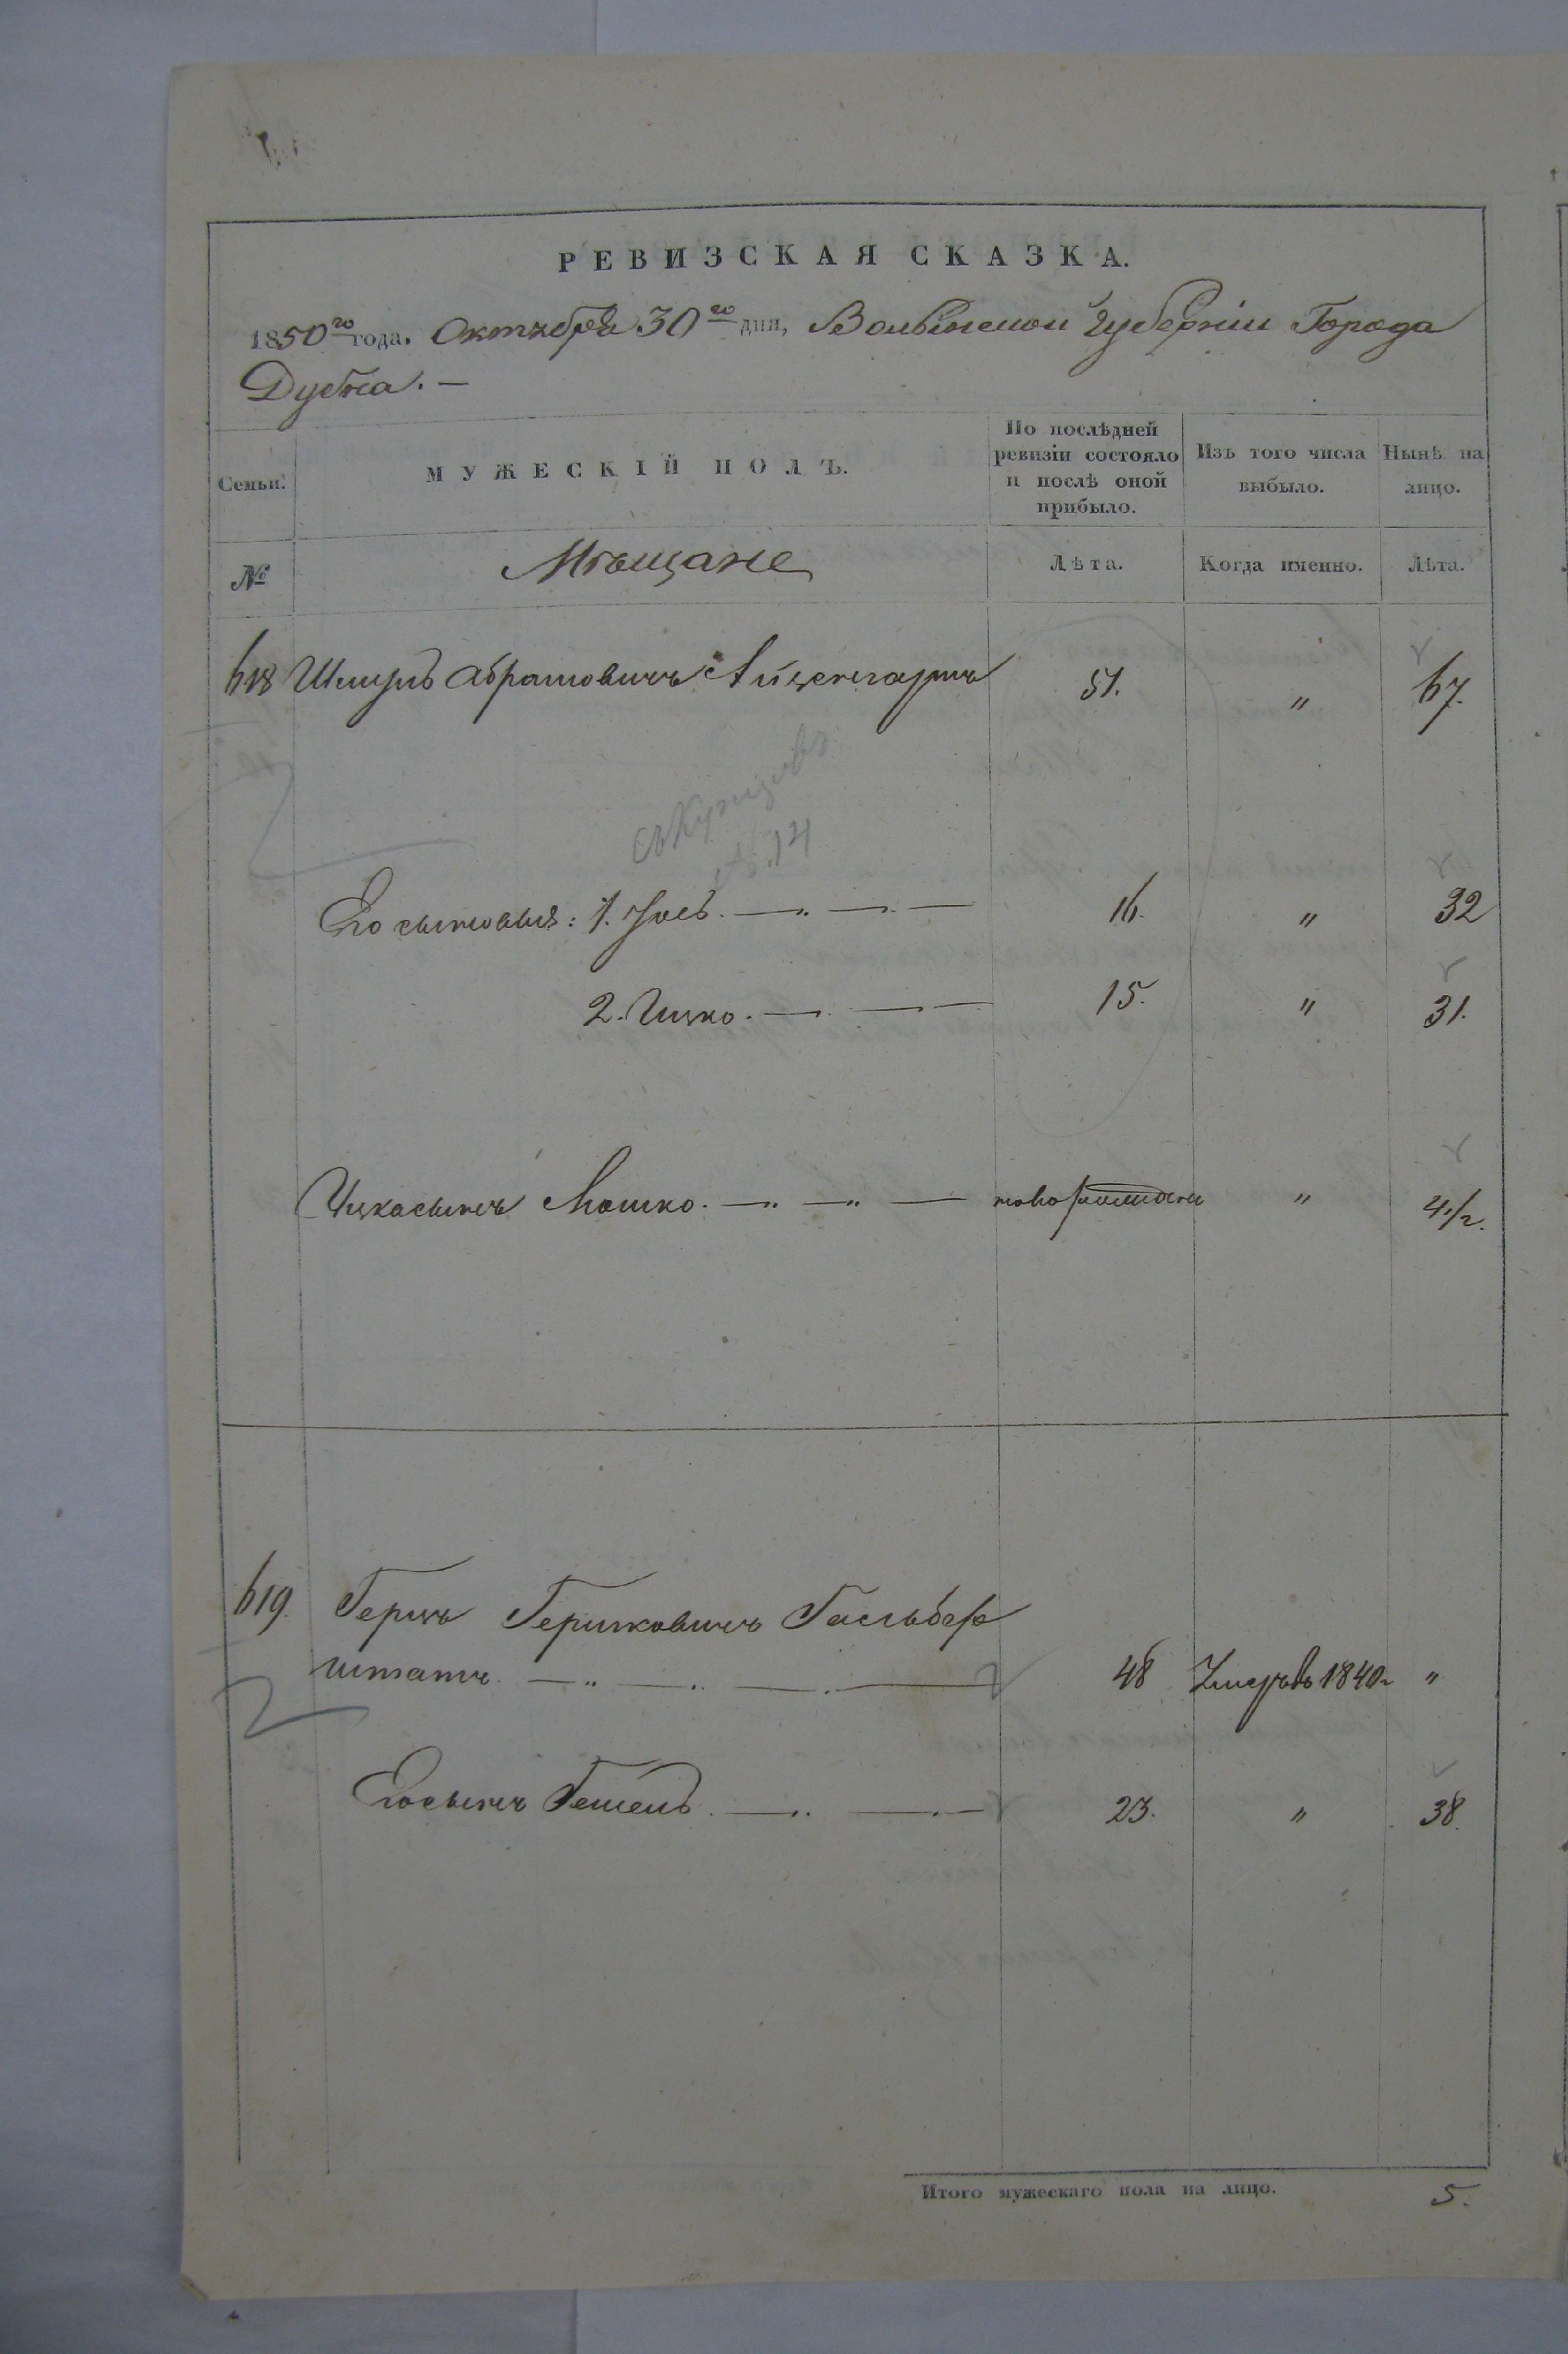 РЕВИЗСКАЯ СКАЗКА.
1850го года. Октября 30го дня, Волынской Губерніи Города
Дубна. —
Семьи.
МУЖЕСКІЙ ПОЛЪ.
По послѣдней ревизіи состояло и послѣ оной прибыло.
Изъ того числа выбыло.
Нынѣ на лицо.
№
Мѣщане
Лѣта.
Когда именно.
Лѣта.
618 Шмуль Абрамовичъ 51. " 67.
№ 14
Его сыновья: 1. Іось. —„ —„ — 16. " 32
2. Ицко. —„ —„ — 15. " 31.
Ицка сынъ Мошко. —„ —„ — новорожденъ " 4 1/2.
619. Герцъ Гершковичъ Гальбер
штатъ. —„ —„ —„ — 48 Умеръ въ 1840г "
Его сынъ Гешель. —„ —„ — 23. " 38.
Итого мужескаго пола на лицо. 5.